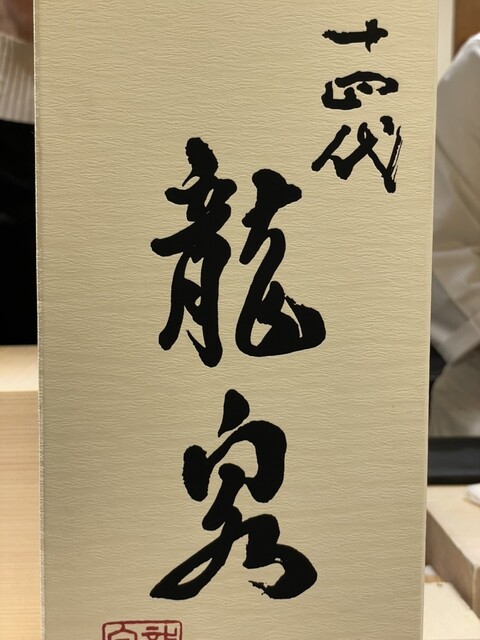 十四代
龍泉